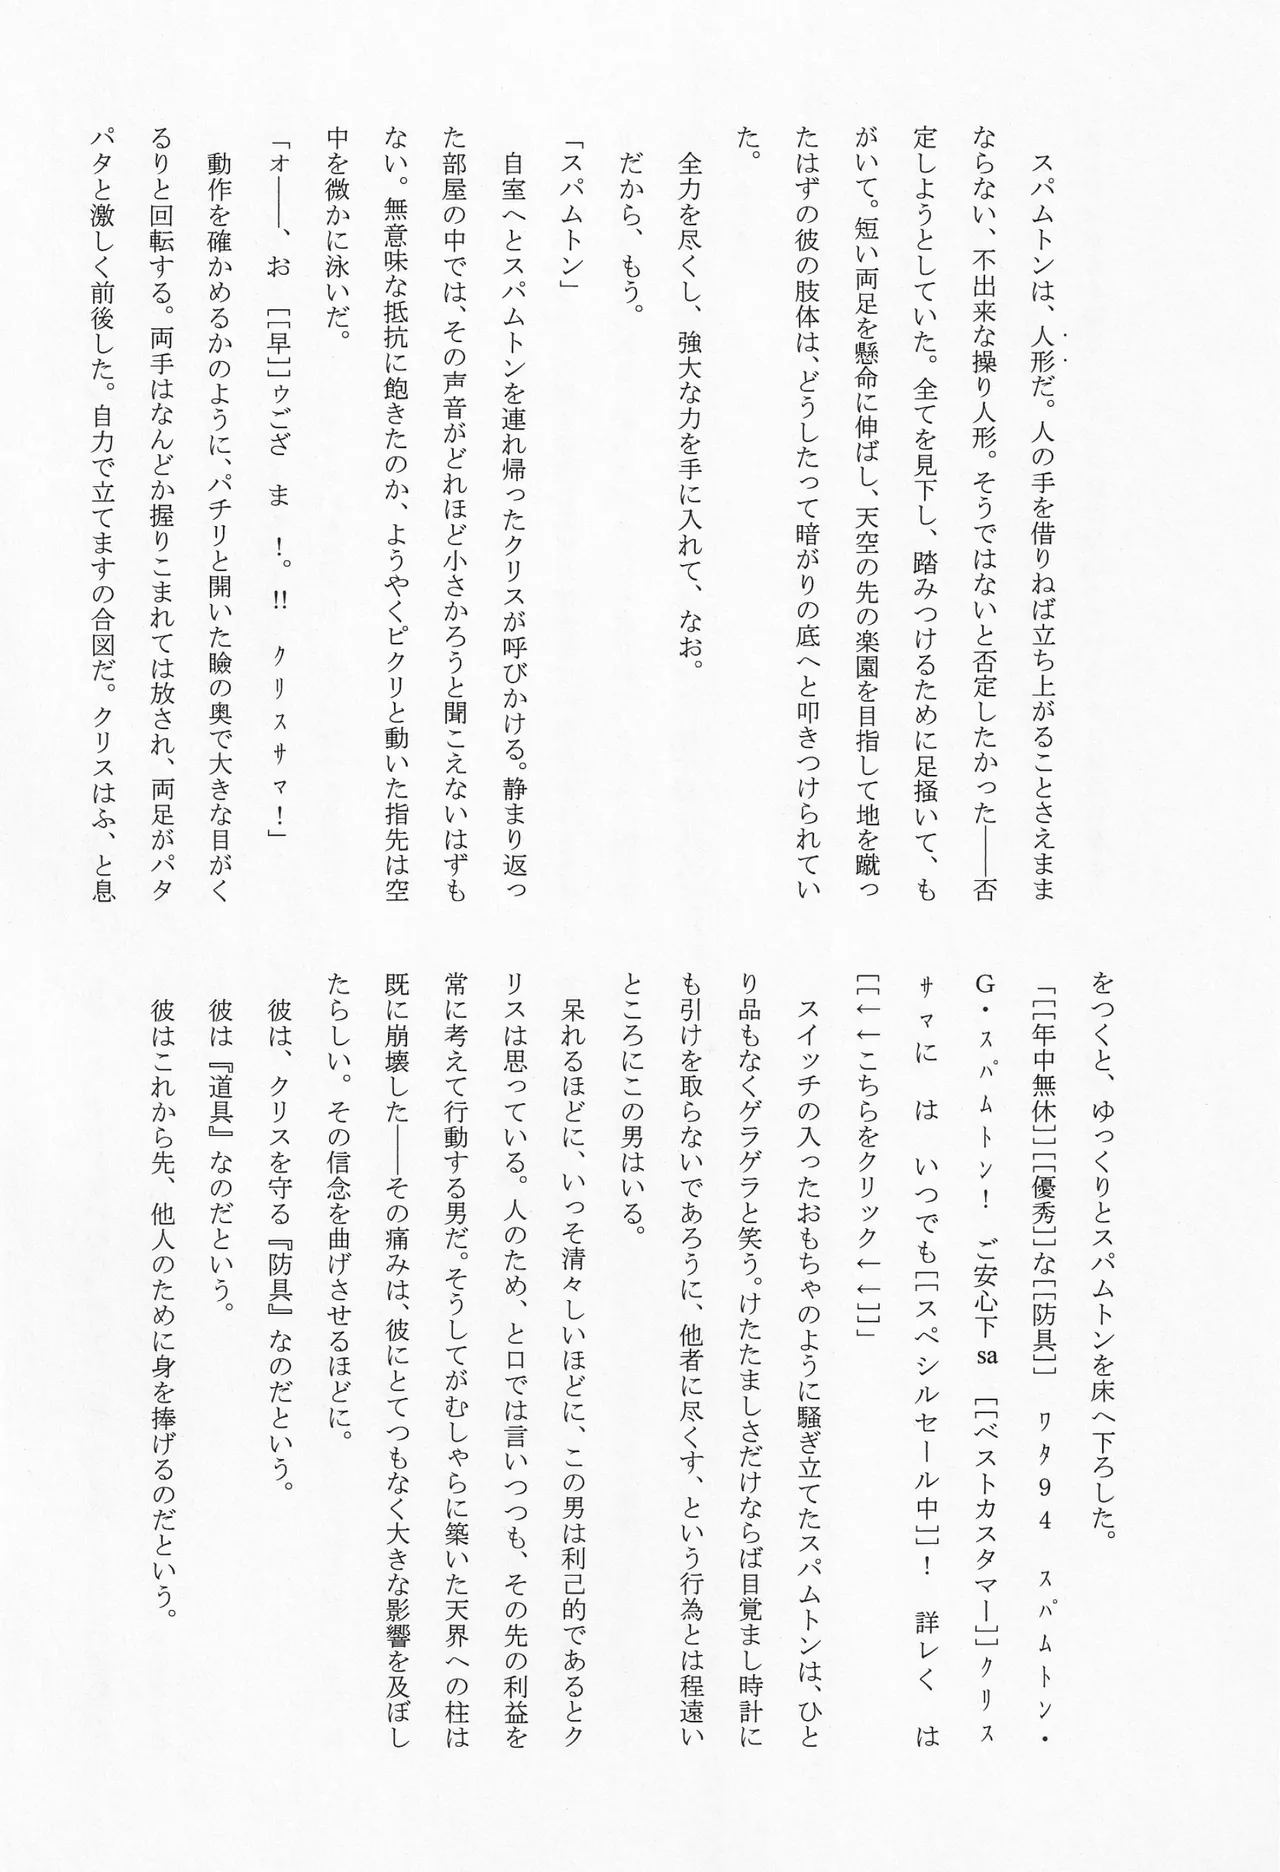 スパムトンは、人形だ。人の手を借りねば立ち上がることさえまま
ならない、不出来な操り人形。そうではないと否定したかった――否
定しようとしていた。全てを見下し、踏みつけるために足掻いて、も
がいて。短い両足を懸命に伸ばし、天空の先の楽園を目指して地を蹴っ
たはずの彼の肢体は、どうしたって暗がりの底へと叩きつけられてい
た。
全力を尽くし、強大な力を手に入れて、なお。
だから、もう。
「スパムトン」
自室へとスパムトンを連れ帰ったクリスが呼びかける。静まり返っ
た部屋の中では、その声音がどれほど小さかろうと聞こえないはずも
ない。無意味な抵抗に飽きたのか、ようやくピクリと動いた指先は空
中を微かに泳いだ。
「ォ――、お　[[早]]ゥござ　ま　！。!!　ｸﾘｽｻﾏ！」
動作を確かめるかのように、パチリと開いた瞼の奥で大きな目がく
るりと回転する。両手はなんどか握りこまれては放され、両足がパタ
パタと激しく前後した。自力で立てますの合図だ。クリスはふ、と息
をつくと、ゆっくりとスパムトンを床へ下ろした。
「[[年中無休]][[優秀]]な[[防具]]　ﾜﾀ94　ｽﾊﾟﾑﾄﾝ・
G・ｽﾊﾟﾑﾄﾝ！　ご安心下sa　[[ベストカスタマー]]ｸﾘｽ
ｻﾏに　は　いつでも[[スペシルセール中]]！　詳レく　は
[[←←こちらをクリック←←]]」
スイッチの入ったおもちゃのように騒ぎ立てたスパムトンは、ひと
り品もなくゲラゲラと笑う。けたたましさだけならば目覚まし時計に
も引けを取らないであろうに、他者に尽くす、という行為とは程遠い
ところにこの男はいる。
呆れるほどに、いっそ清々しいほどに、この男は利己的であるとク
リスは思っている。人のため、と口では言いつつも、その先の利益を
常に考えて行動する男だ。そうしてがむしゃらに築いた天界への柱は
既に崩壊した――その痛みは、彼にとてつもなく大きな影響を及ぼし
たらしい。その信念を曲げさせるほどに。
彼は、クリスを守る『防具』なのだという。
彼は『道具』なのだという。
彼はこれから先、他人のために身を捧げるのだという。